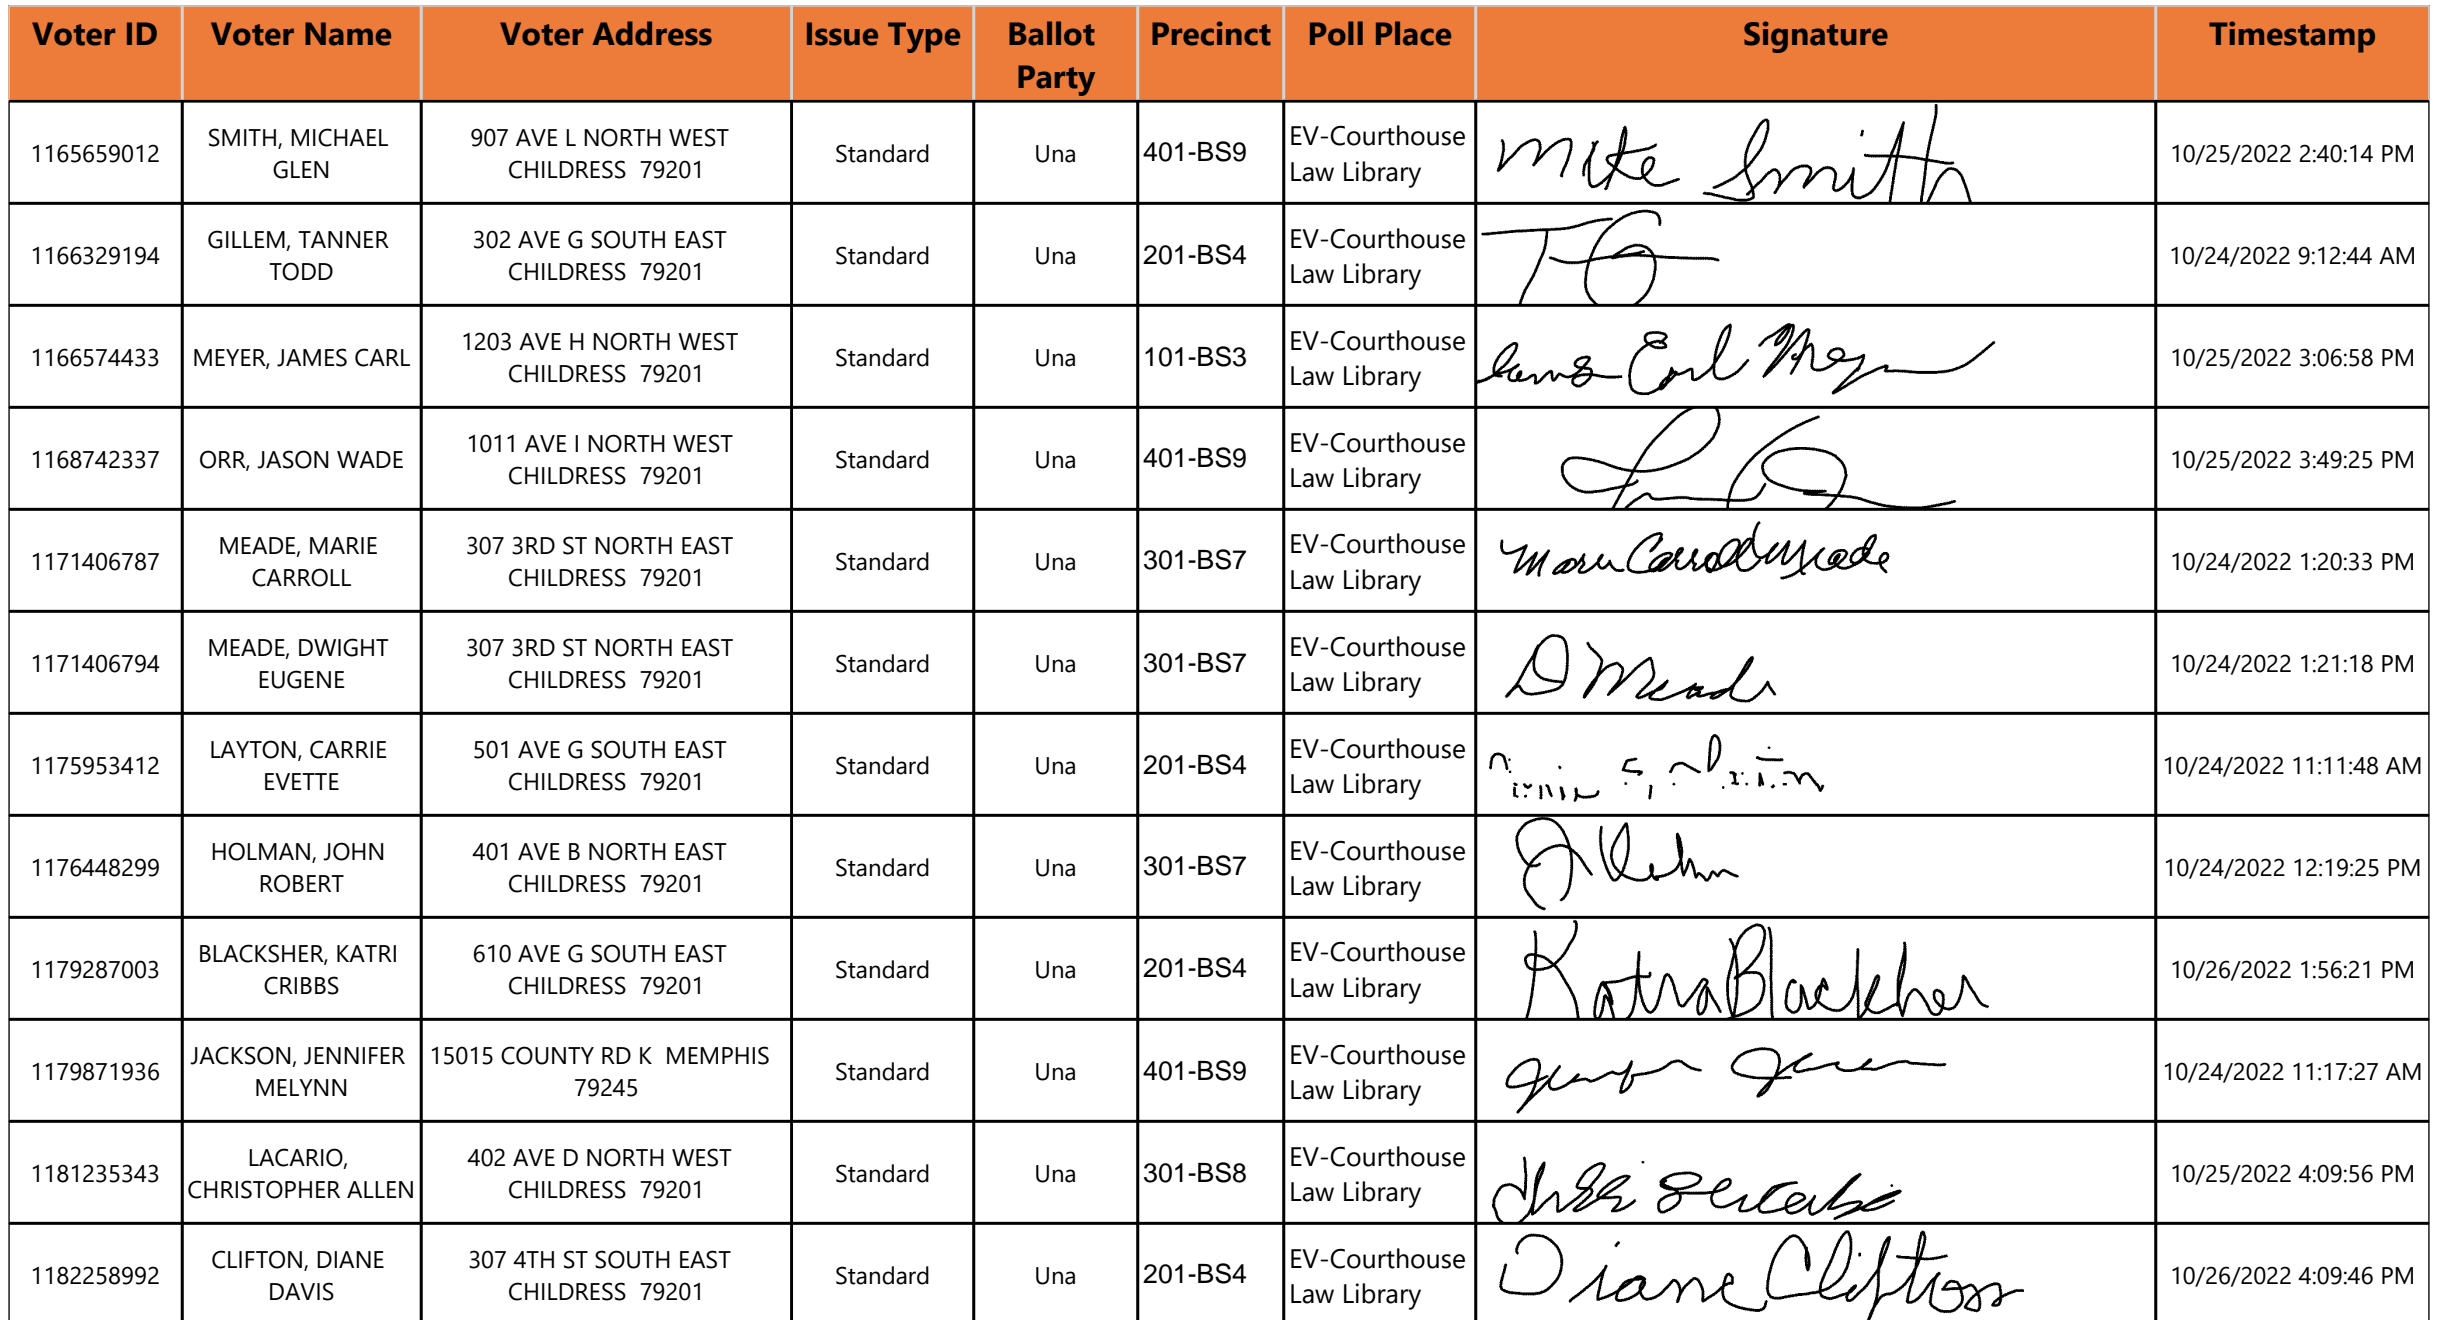 Voter ID
Voter Name
Voter Address
Issue Type
Ballot
Party
Precinct
Poll Place
Signature
Timestamp
1165659012
SMITH, MICHAEL
GLEN
907 AVE L NORTH WEST
CHILDRESS 79201
Standard
Una
401-BS9
EV-Courthouse
Law Library
Mike Smith
10/25/2022 2:40:14 PM
1166329194
GILLEM, TANNER
TODD
302 AVE G SOUTH EAST
CHILDRESS 79201
Standard
Una
201-BS4
EV-Courthouse
Law Library
10/24/2022 9:12:44 AM
1166574433
MEYER, JAMES CARL
1203 AVE H NORTH WEST
CHILDRESS 79201
Standard
Una
101-BS3
EV-Courthouse
Law Library
10/25/2022 3:06:58 PM
1168742337
ORR, JASON WADE
1011 AVE I NORTH WEST
CHILDRESS 79201
Standard
Una
401-BS9
EV-Courthouse
Law Library
10/25/2022 3:49:25 PM
1171406787
MEADE, MARIE
CARROLL
307 3RD ST NORTH EAST
CHILDRESS 79201
Standard
Una
301-BS7
EV-Courthouse
Law Library
10/24/2022 1:20:33 PM
1171406794
MEADE, DWIGHT
EUGENE
307 3RD ST NORTH EAST
CHILDRESS 79201
Standard
Una
301-BS7
EV-Courthouse
Law Library
D Meade
10/24/2022 1:21:18 PM
1175953412
LAYTON, CARRIE
EVETTE
501 AVE G SOUTH EAST
CHILDRESS 79201
Standard
Una
201-BS4
EV-Courthouse
Law Library
10/24/2022 11:11:48 AM
1176448299
HOLMAN, JOHN
ROBERT
401 AVE B NORTH EAST
CHILDRESS 79201
Standard
Una
301-BS7
EV-Courthouse
Law Library
10/24/2022 12:19:25 PM
1179287003
BLACKSHER, KATRI
CRIBBS
610 AVE G SOUTH EAST
CHILDRESS 79201
Standard
Una
201-BS4
EV-Courthouse
Law Library
10/26/2022 1:56:21 PM
1179871936
JACKSON, JENNIFER
MELYNN
15015 COUNTY RD K MEMPHIS
79245
Standard
Una
401-BS9
EV-Courthouse
Law Library
10/24/2022 11:17:27 AM
1181235343
LACARIO,
CHRISTOPHER ALLEN
402 AVE D NORTH WEST
CHILDRESS 79201
Standard
Una
301-BS8
EV-Courthouse
Law Library
10/25/2022 4:09:56 PM
1182258992
CLIFTON, DIANE
DAVIS
307 4TH ST SOUTH EAST
CHILDRESS 79201
Standard
Una
201-BS4
EV-Courthouse
Law Library
Diane Clifton
10/26/2022 4:09:46 PM